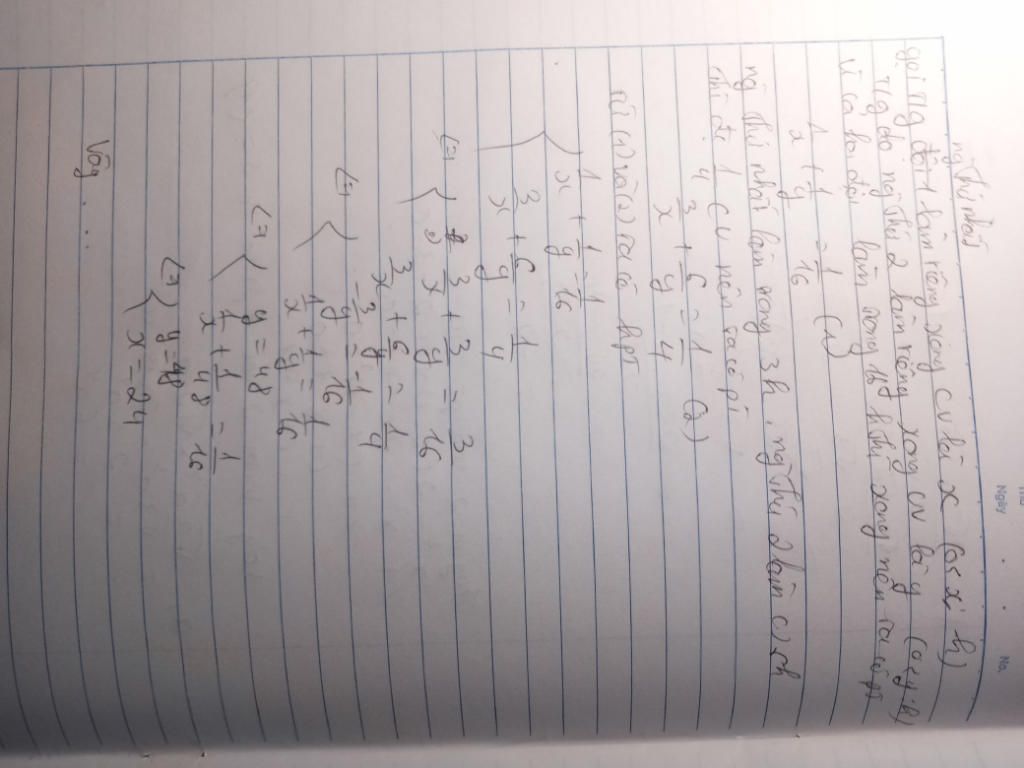 Thứ
Ngày . . No.
ng thứ nhất
gọi t/g đội 1 làm riêng xong CV là x (0<x, h)
t/g đó ng thứ 2 làm riêng xong CV là y (0<y, h)
Vì cả hai đội làm trong 16 h thì xong nên ta có pt
1/x + 1/y = 1/16 (1)
ng thứ nhất làm trong 3h, ng thứ 2 làm 6h
thì đc 1/4 CV nên ta có pt
3/x + 6/y = 1/4 (2)
từ (1) và (2) ta có hpt
{ 1/x + 1/y = 1/16
3/x + 6/y = 1/4
<=> { 3/x + 3/y = 3/16
3/x + 6/y = 1/4
<=> { -3/y = -1/16
1/x + 1/y = 1/16
<=> { y = 48
1/x + 1/48 = 1/16
<=> { y = 48
x = 24
Vậy ...